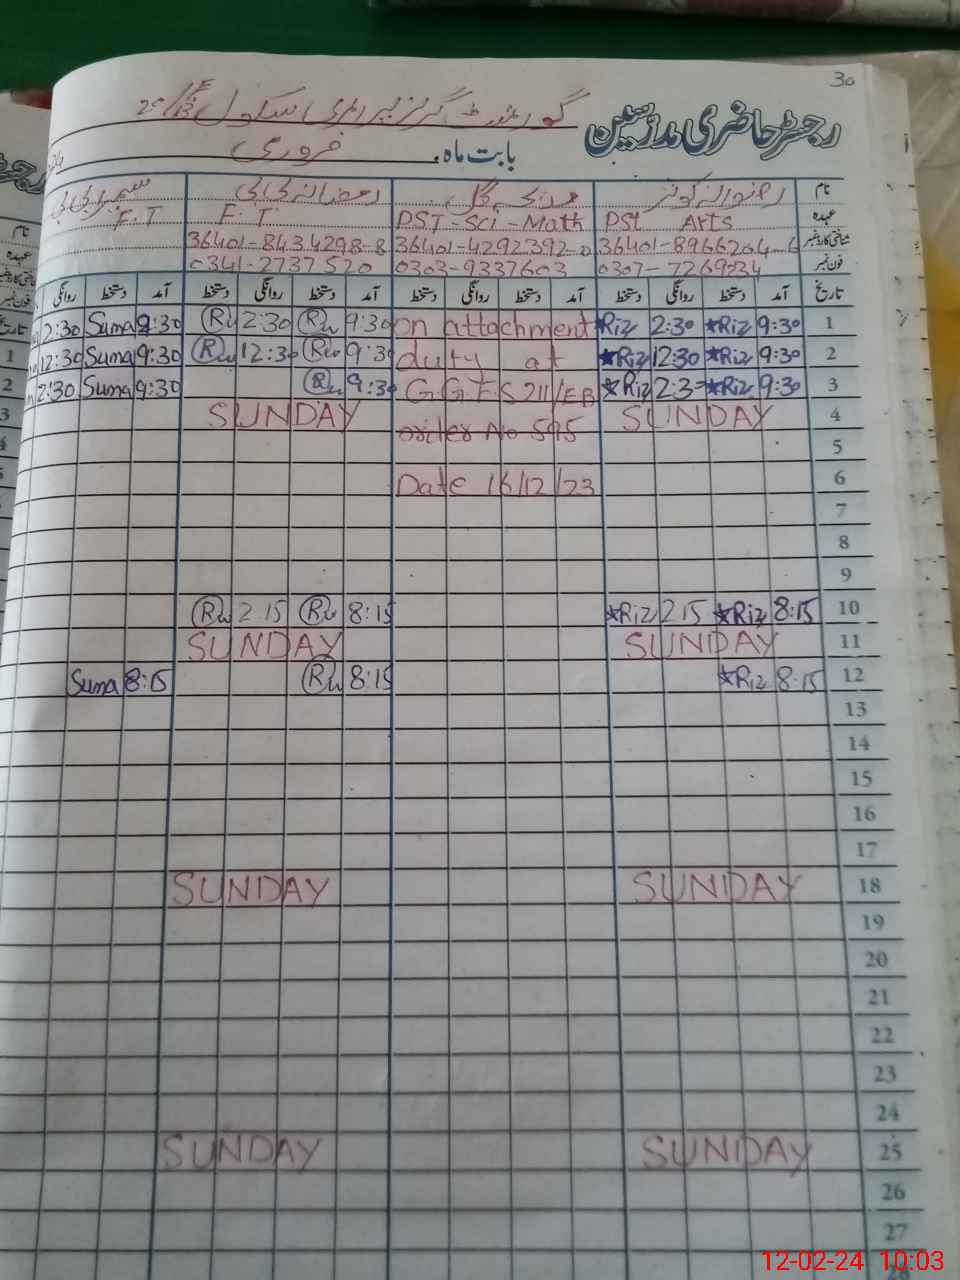 30
رجسٹر حاضری مدرّسین
گورنمنٹ گرلز پرائمری سکول
بابت ماہ۔ فروری
نام
عہدہ PST Arts PST-Sci-Math F.T F.T
شناختی کارڈ نمبر 36401-8966264-6 36401-4292392-0 36401-8434298-8
فون نمبر 0307-7269534 0303-9337603 0341-2737520
تاریخ آمد دستخط روانگی دستخط آمد دستخط روانگی دستخط آمد دستخط روانگی دستخط آمد دستخط روانگی
1 9:30 Riz 2:30 Riz on attachment 9:30 Ru 2:30 Ru 9:30 Suma 2:30
2 9:30 Riz 12:30 Riz duty at 9:30 Ru 12:30 Ru 9:30 Suma 12:30
3 9:30 Riz 2:30 Riz G.G.E.S 211/EB 9:30 Ru 9:30 Suma 2:30
4 SUNDAY order No 595 SUNDAY
5
6 Date 16/12/23
7
8
9
10 8:15 Riz 2 15 Riz 8:15 Ru 2.15 Ru
11 SUNDAY SUNDAY
12 8:15 Riz 8:15 Ru 8:15 Suma
13
14
15
16
17
18 SUNDAY SUNDAY
19
20
21
22
23
24
25 SUNDAY SUNDAY
26
27
12-02-24 10:03